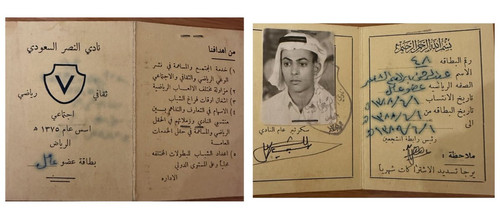 نادي النصر السعودي
ثقافي
رياضي
اجتماعي
اسس عام ١٣٧٥ هـ
الرياض
بطاقة عضو عامل
من اهدافنا
١) خدمة المجتمع والمساهمة في نشر
الوعي الرياضي والثقافي والاجتماعي
٢) مزاولة مختلف الالعاب الرياضية
٣) اشغال اوقات فراغ الشباب
٤) الاسهام في التعارف والتفاهم بين
منتسبي النادي وزملائهم في الحقل
الرياضي والمساهمة في حقل الخدمات
العامة
٥) اعداد الشباب للبطولات المختلفة
محلياً وعلى المستوى الدولي
الاداره
بسم الله الرحمن الرحيم
رقم البطاقه ٤٨
الأسم
الصفه الرياضيه عضو عامل
تاريخ الانتساب
تاريخ البطاقه
رئيس رابطة المشجعين
سكرتير عام النادي
ملاحظة :
يرجا تسديد الاشتراكات شهرياً